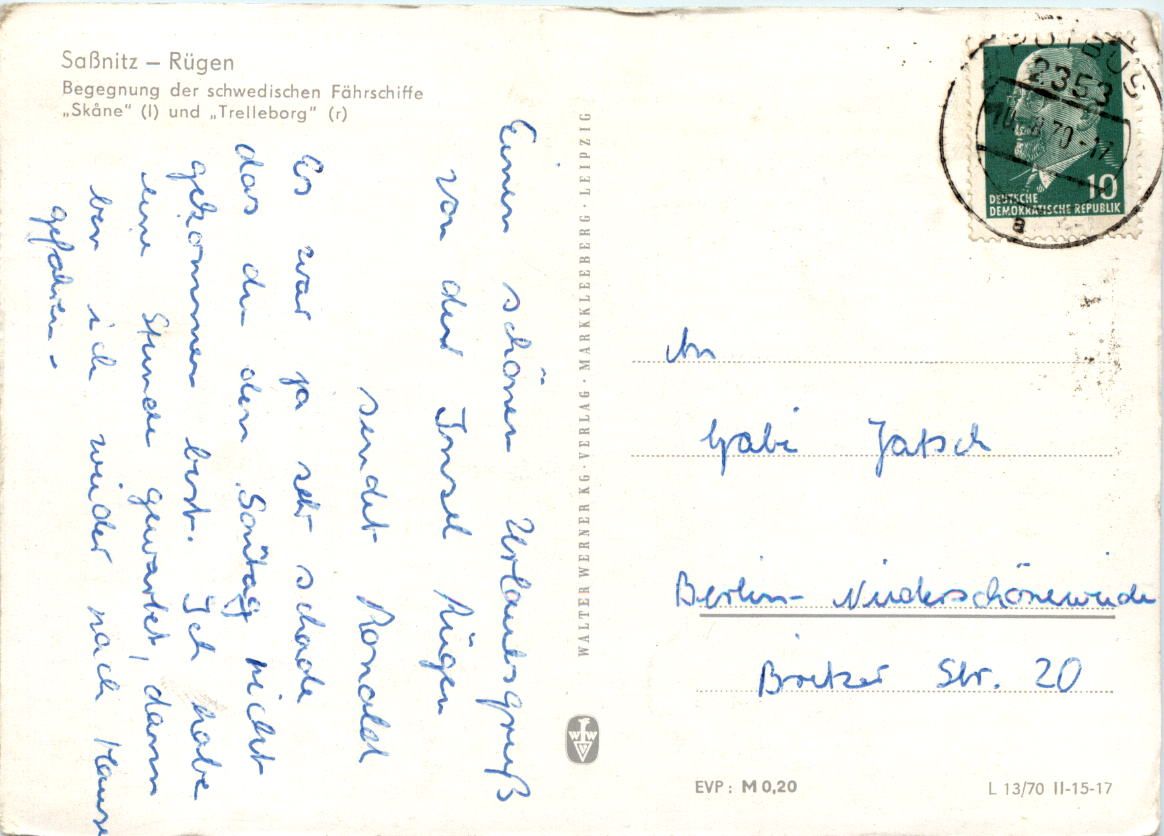 Saßnitz – Rügen
Begegnung der schwedischen Fährschiffe
„Skåne“ (l) und „Trelleborg“ (r)
Einen schönen Urlaubsgruß
von der Insel Rügen
sendet Ronald
Es war ja sehr schade
das du den Sonntag nicht
gekommen bist. Ich habe
eine Stunde gewartet, dann
bin ich wieder nach Hause
gefahren.
WALTER WERNER KG · VERLAG · MARKKLEEBERG · LEIPZIG
PUTBUS
2353
70-17
a
10
DEUTSCHE
DEMOKRATISCHE REPUBLIK
An
Gabi Jatsch
Berlin- Niederschöneweide
Britzer Str. 20
EVP: M 0,20
L 13/70 II-15-17